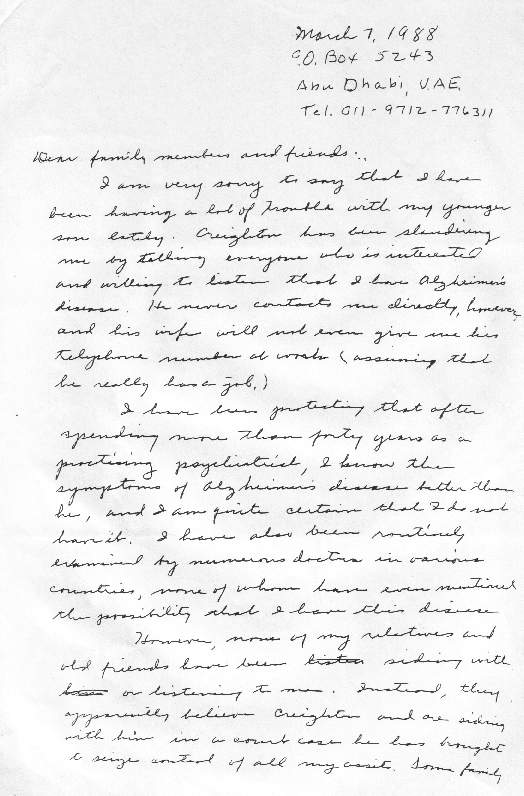 March 7, 1988
P.O. Box 5243
Abu Dhabi, U.A.E.
Tel. 011-9712-776311
Dear family members and friends:
I am very sorry to say that I have
been having a lot of trouble with my younger
son lately. Creighton has been slandering
me by telling everyone who is interested
and willing to listen that I have Alzheimer's
disease. He never contacts me directly, however,
and his wife will not even give me his
telephone number at work (assuming that
he really has a job.)
I have been protesting that after
spending more than forty years as a
practising psychiatrist, I know the
symptoms of Alzheimer's disease better than
he, and I am quite certain that I do not
have it. I have also been routinely
examined by numerous doctors in various
countries, none of whom have even mentioned
the possibility that I have this disease
However, none of my relatives and
old friends have been listen siding with
or listening to me. Instead, they
apparently believe Creighton and are siding
with him in a court case he has brought
to seize control of all my assets. Some family